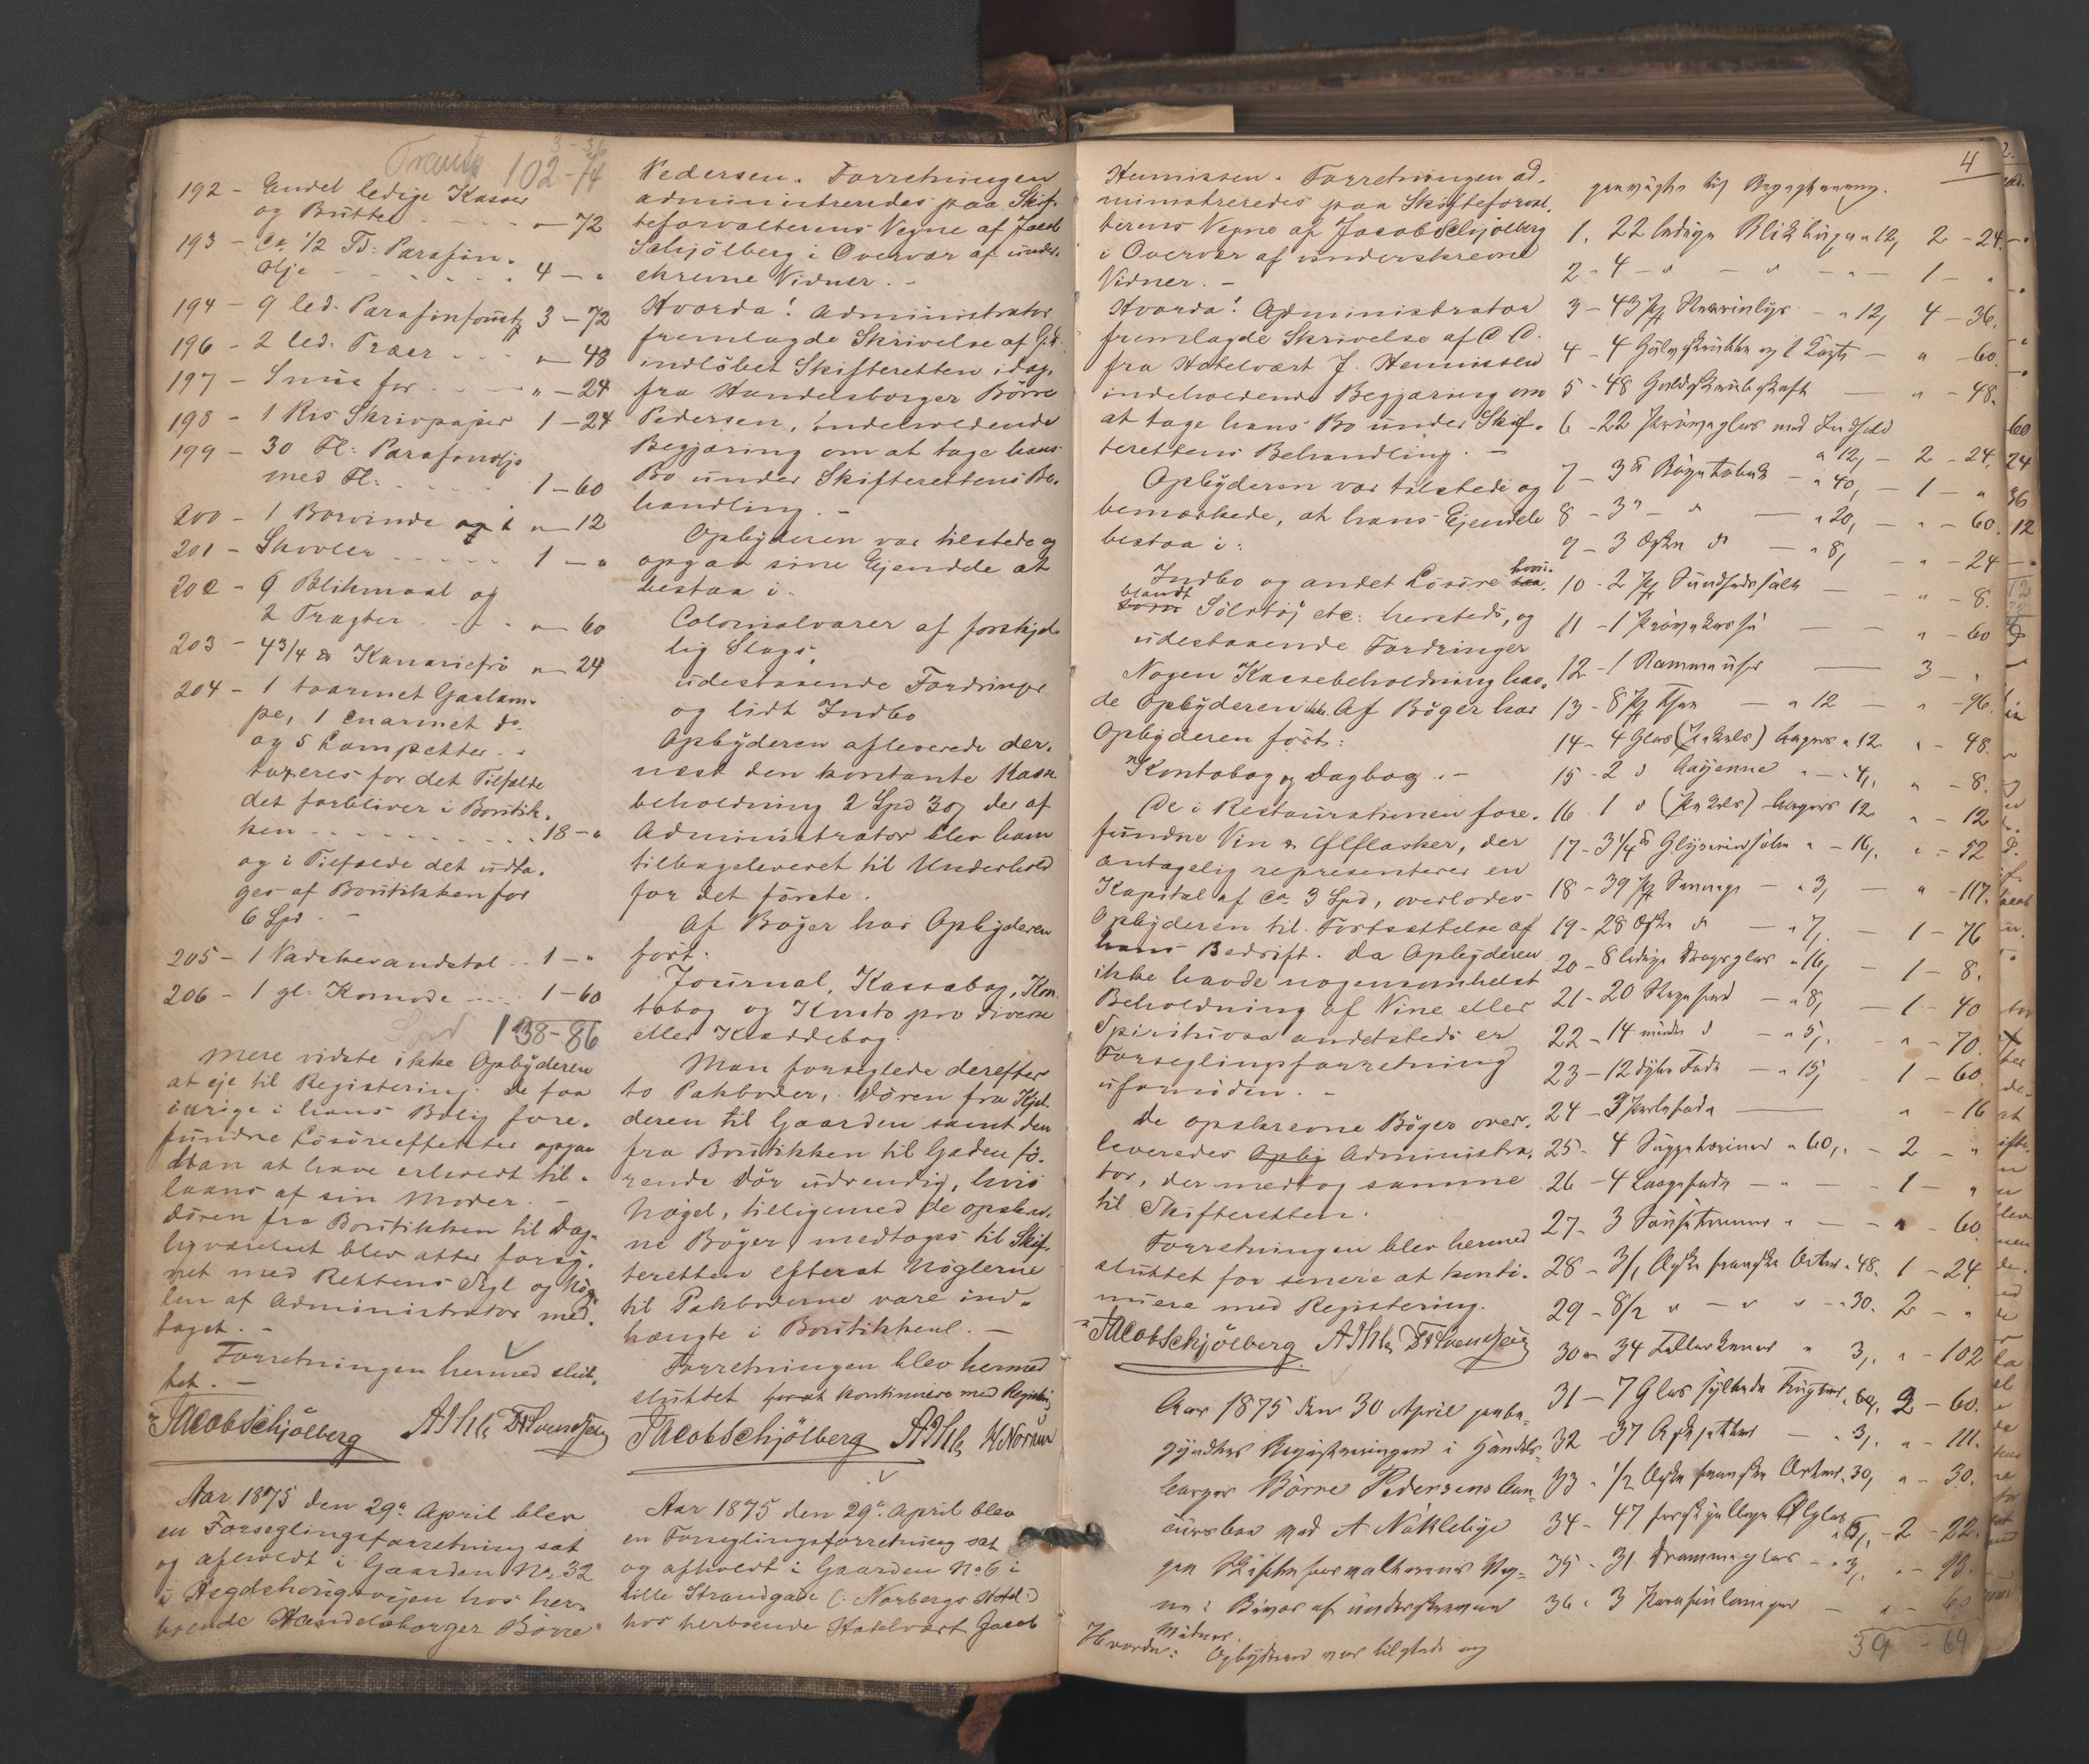 Transp 102-74
192 - Endel ledige Kasser
og Bütter - - - " - 72
193 - Ca. 1/2 Td: Parafin-
Olje - - - - 4 - "
194 - 9 led. Parafinfoustg 3 - 72
196 - 2 led. Træer - - - " - 48
197 - Snüs for - - - " - 24
198 - 1 Ris Skrivpapir 1 - 24
199 - 30 Fl: Parafinolje
med Fl: - - - - 1 - 60
200 - 1 Borvinde og " - 12
201 - Skovler - - - - 1 - "
202 - 9 Blikmaal og
2 Tragter - - - " - 60
203 - 4 3/4 ℔ Kanariefrø " - 24
204 - 1 toarmet Gaslam-
pe, 1 enarmet do.
og 5 Lampetter - -
taxeres for det Tilfælde
det forbliver i Boutik-
ken - - - - - - 18 - "
og i Tilfælde det udta-
ges af Boutikken for
6 Spd -
205 - 1 Vadskevandstol - - 1 - "
206 - 1 gl. Komode - - - 1 - 60
Spd 138 - 86
Mere vidste ikke Opbÿderen
at eje til Registering. De faa
øvrige i hans Bolig fore-
fundne Løsøreeffekter opgav
han at have erholdt til-
laans af sin Moder. -
Døren fra Boutikken til Dag-
ligværelset blev atter forsÿ-
net med Rettens Segl og Nøg-
len af Administrator med-
taget. -
Forretningen hermed slut-
tet. -
Jacob Schjölberg
Aar 1875 den 29de April blev
en Forseglingsforretning sat
og afholdt i Gaarden No 32
i Hegdehougsvejen hos her-
boende Handelsborger Börre
Pedersen. Forretningen
administreredes paa Skif-
teforvalterens Vegne af Jacob
Schjölberg i Overvær af under-
skrevne Vidner. -
Hvorda! Administrator
fremlagde Skrivelse af G. D.
indløbet Skifteretten idag,
fra Handelsborger Börre
Pedersen, indeholdende
Begjæring om at tage hans
Bo under Skifterettens Be-
handling. -
Opbÿderen var tilstede og
opgav sine Ejendele at
bestaa i -
Colonialvarer af forskjel-
lig Slags,
udestaaende Fordringer
og lidt Indbo
Opbÿderen afleverede der-
næst den kontante Kasse-
beholdning 2 Spd 30, der af
Administrator blev ham
tilbageleveret til Underhold
for det første.
Af Bøger har Opbÿderen
ført:
Journal, Kassabog, Kon-
tobog og Konto pro diverse
eller Kladdebog.
Man forseglede derefter
to Pakboder, Døren fra Kjel-
deren til Gaarden samt den
fra Boutikken til Gaden fø-
rende Dør udvendig, hvis
Nøgel, tilligemed de opskrev-
ne Bøger, medtoges til Skif-
teretten efterat Nøglerne
til Pakboderne vare ind-
hængte i Boutikken. -
Forretningen blev hermed
sluttet forat kontinuere med Registering
Jacob Schjölberg
Aar 1875 den 29de April blev
en Forseglingsforretning sat
og afholdt i Gaarden No 6 i
lille Strandgade (: Norbergs Hotel :)
hos herboende Hotelvært Jacob
4
Hennissen. Forretningen ad-
ministreredes paa Skifteforval-
terens Vegne af Jacob Schjölberg
i Overvær af underskrevne
Vidner. -
Hvorda! Administrator
fremlagde Skrivelse af D. D.
fra Hotelvært J. Hennissen
indeholdende Begjæring om
at tage hans Bo under Skif-
terettens Behandling. -
Opbÿderen var tilstede og
bemærkede, at hans Ejendele
bestaa i:
Indbo og andet Løsøre hvori-
blandt Sølvtøj etc: hersteds, og
udestaaende Fordringer
Nogen Kassebeholdning hav-
de Opbÿderen ikke. Af Bøger har
Opbÿderen ført:
Kontobog og Dagbog. -
De i Restaurationen fore-
fundne Vin & Ølflasker, der
antagelig representerer en
Kapital af Ca 3 Spd, overlodes
Opbÿderen til Fortsættelse af
hans Bedrift. Da Opbÿderen
ikke havde nogensomhelst
Beholdning af Vine eller
Spirituosa andetsteds er
Forseglingsforretning
ufornöden. -
De opskrevne Bøger over-
leveredes Opbÿ Administra-
tor, der medtog samme
til Skifteretten.
Forretningen blev hermed
sluttet for senere at konti-
nuere med Registering.
Jacob Schjölberg
Aar 1875 den 30 April paabe-
gÿndtes Registeringen i Handels-
borger Börre Pedersens Con-
cursbo ved A Naklebÿe
paa Skifteforvalterens Veg-
ne i Bivær af underskrevne
Vidner.
Hvorda: Opbÿderen var tilstede og
paaviste til Registering.
1. 22 ledige Blikbüger a 12, 2 - 24.
2 - 4 - " - " - " - 1 - "
3 - 43 Stearinlÿs - a 12, 4 - 36.
4 - 4 Gulvskrubber og 1 Kost - " - 60
5 - 48 - " - 48.
6 - 22 Prøveglas med Indhold
a 12, - 2 - 24,
7 - 3 ℔ Røgetobak - a 40, - 1 - "
8 - 3 " - " - a 20, - " - 60.
9 - 3 Æsker do - a 8, - " - 24
10 - 2 - " - 8.
11 - 1 - " - 60
12 - 1 - 3 - "
13 - 8 - a 12 - " - 96.
14 - 4 Glas a 12 " - 48.
15 - 2 do Cayenne " - 4, " - 8.
16 - 1 do 12 " - 12
17 - 3 1/4 ℔ - 16, " - 52
18 - 39 - a 3, - " - 117.
19 - 28 Æsker do - a 7, - 1 - 76
20 - 8 ledige a 16, - 1 - 8.
21 - 20 Stegefad - a 8, - 1 - 40
22 - 14 mindre do - a 5, - " - 70.
23 - 12 dybe Fade - a 15, 1 - 60
24 - 3 - " - 16
25 - 4 Suppeterriner a 60, - 2 - "
26 - 4 - 1 - "
27 - 3 - " - 60
28 - 3/1 Æske franske Erter a 48. 1 - 24
29 - 8/2 " - " - " - a 30. 2 - "
30 - 34 Tallerkener a 3, " - 102
31 - 7 Glas sÿltede Frugter a 60, 3 - 60.
32 - 37 - a 3, " - 111.
33 - 1/2 Æske franske Erter a 30, " - 30.
34 - 47 forskjellige Ølglas
- 2 - 22.
35 - 31 Drammeglas - a 3, " - 93.
36 - 3 Parafinlamper - " - 60
39 - 69